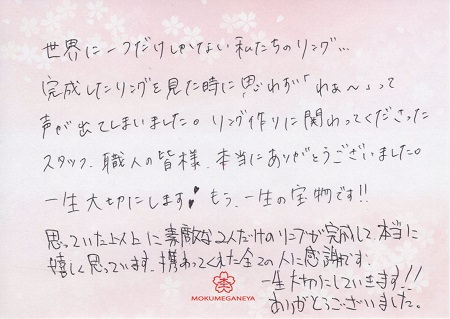 世界に一つだけしかない私たちのリング…
完成したリングを見た時に思わず「わぁ〜」って
声が出てしまいました。リング作りに関わってくださった
スタッフ、職人の皆様、本当にありがとうございました。
一生大切にします♥ もう、一生の宝物です!!
思っていた以上に素敵な2人だけのリングが完成して、本当に
嬉しく思っています。携わってくれた全ての人に感謝です。
一生大切にしていきます!!
ありがとうございました。
MOKUMEGANEYA